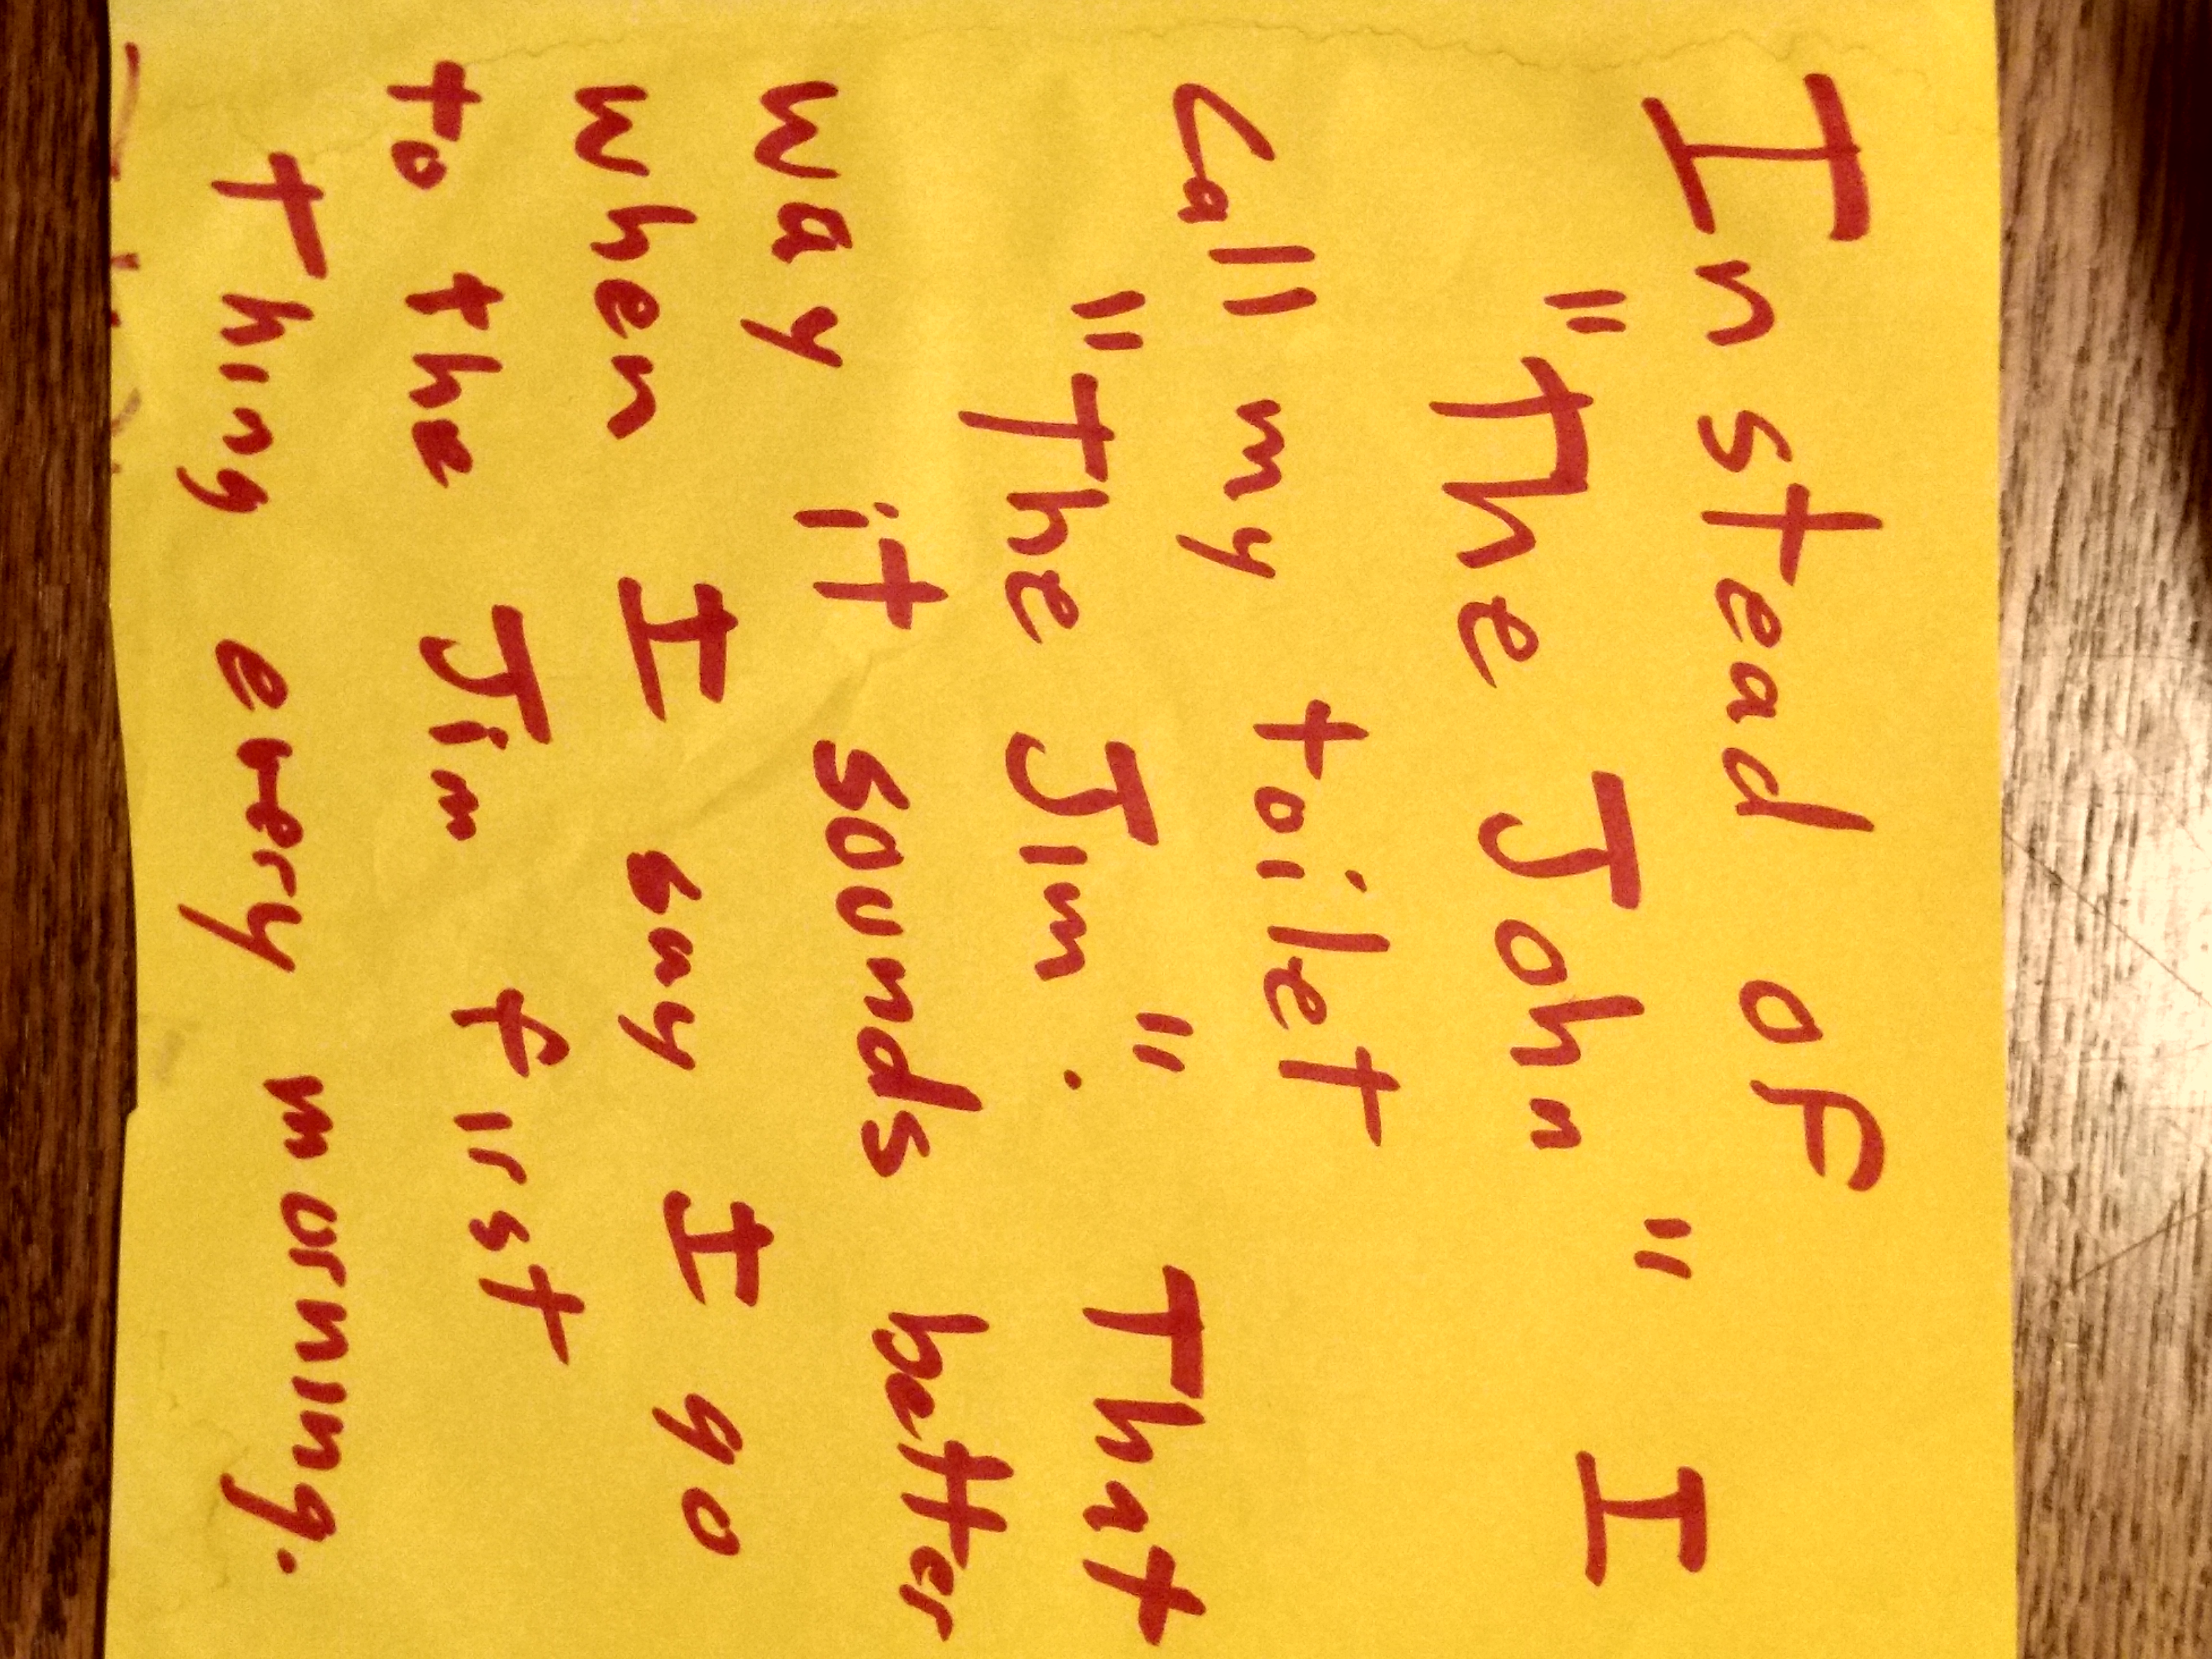 Instead of
"The John" I
Call my toilet
"The Jim". That
way it sounds better
when I say I go
to the Jim first
thing every morning.